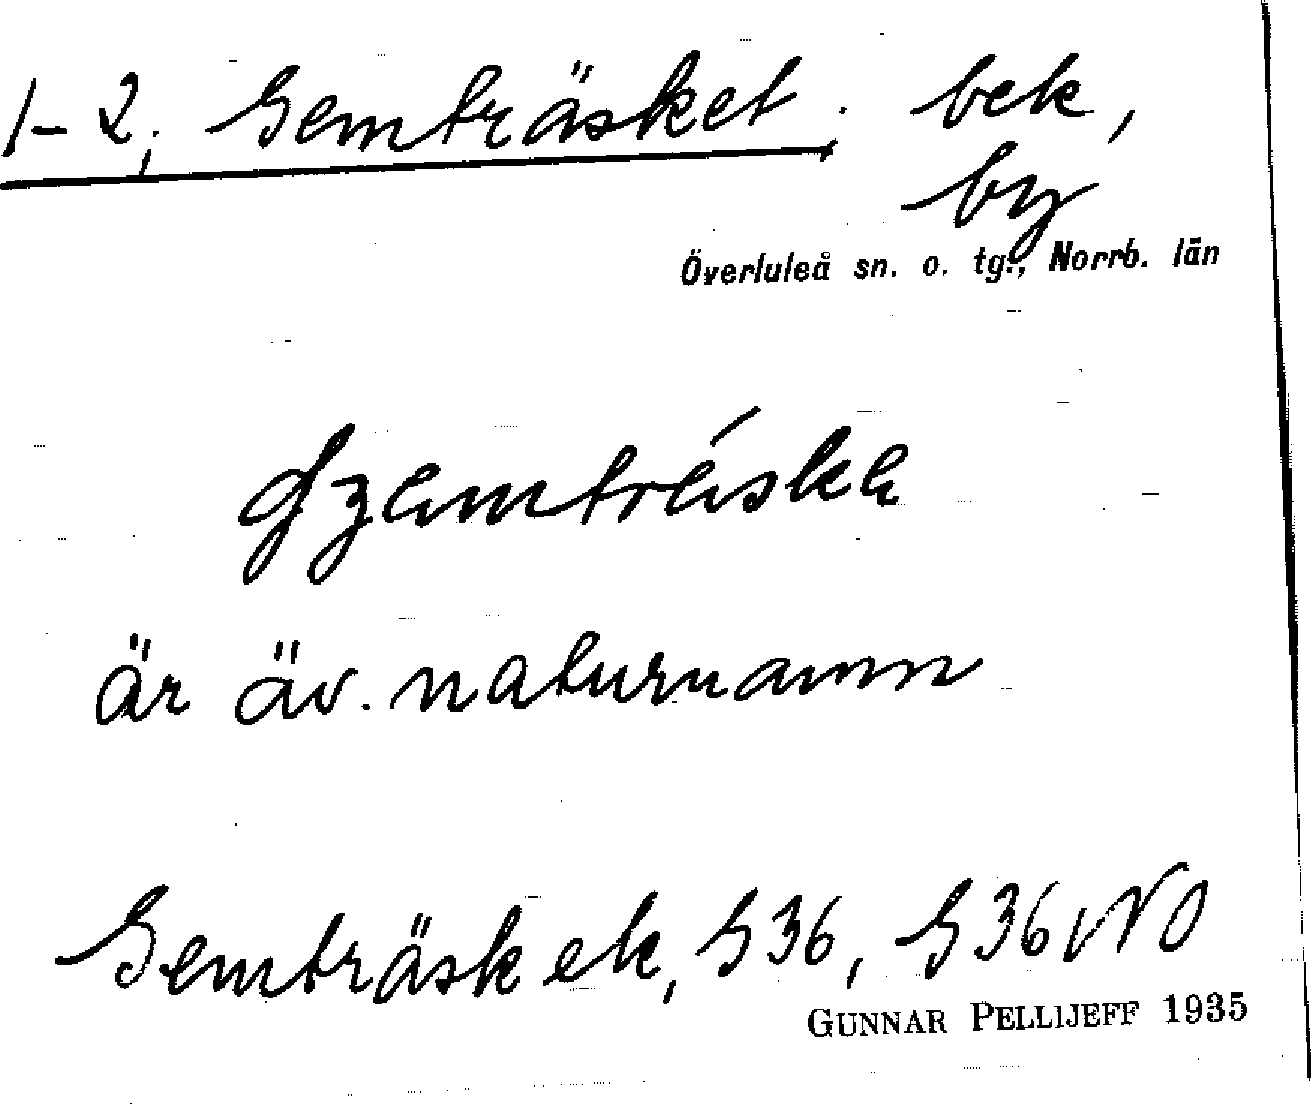 1-2; Gemträsket. bek,
by
Överluleå sn. o. tg., Norrb. län
är äv. naturnamn
Gemträsk ek, G36, G36vNO
GUNNAR PELLIJEFF 1935